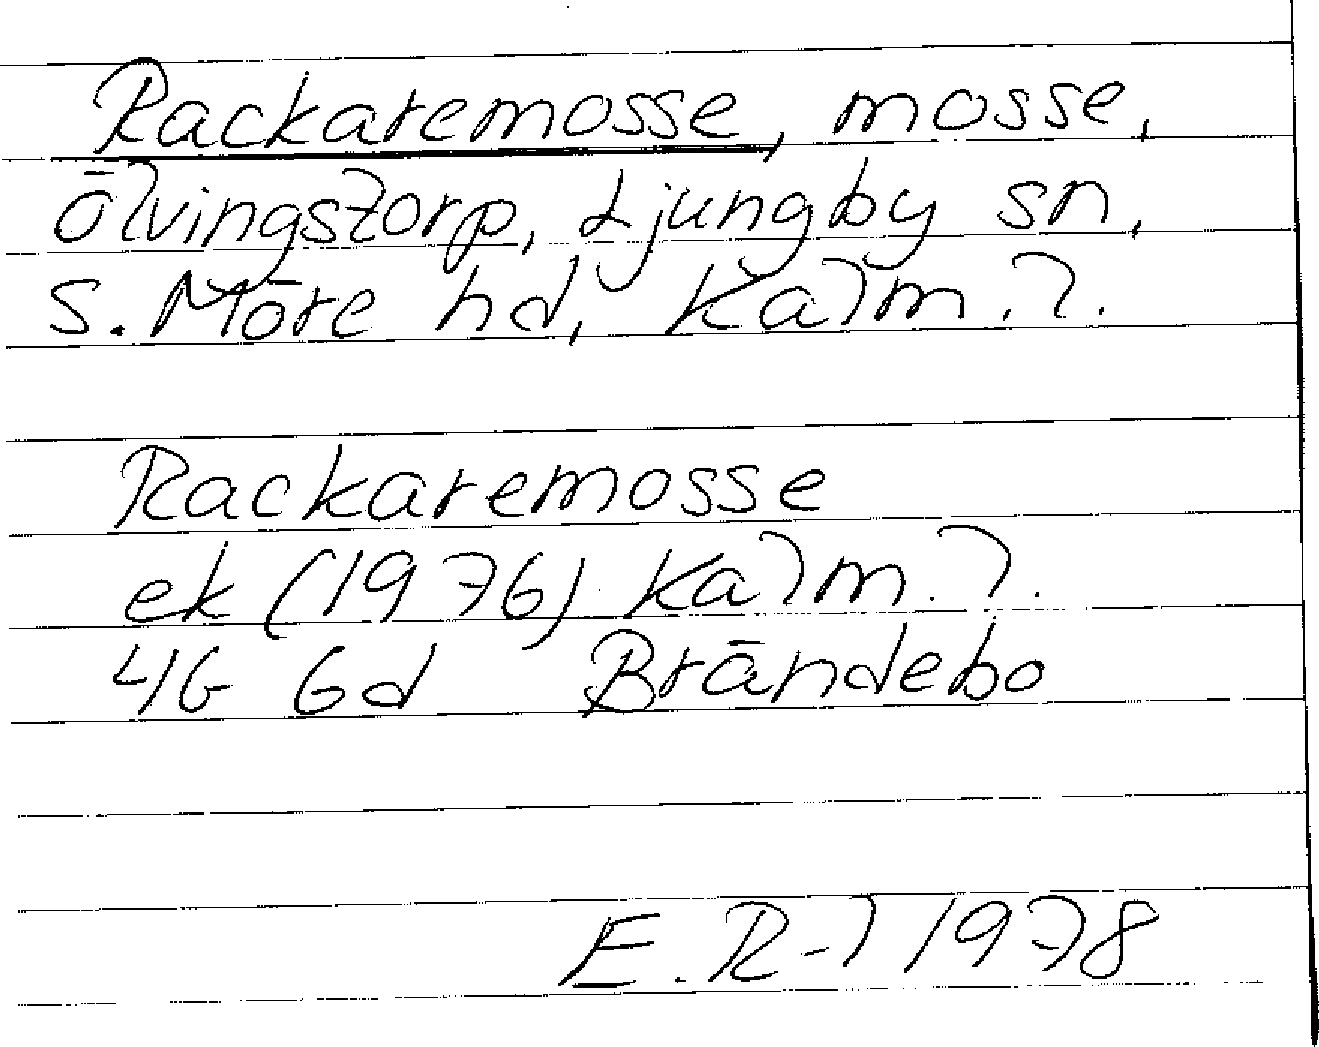 Rackaremosse, mosse,
Ölvingstorp, Ljungby sn,
S. Möre hd, Kalm. l.
Rackaremosse
ek (1976) Kalm. l.
4G 6d Brändebo
E. R-l 1978